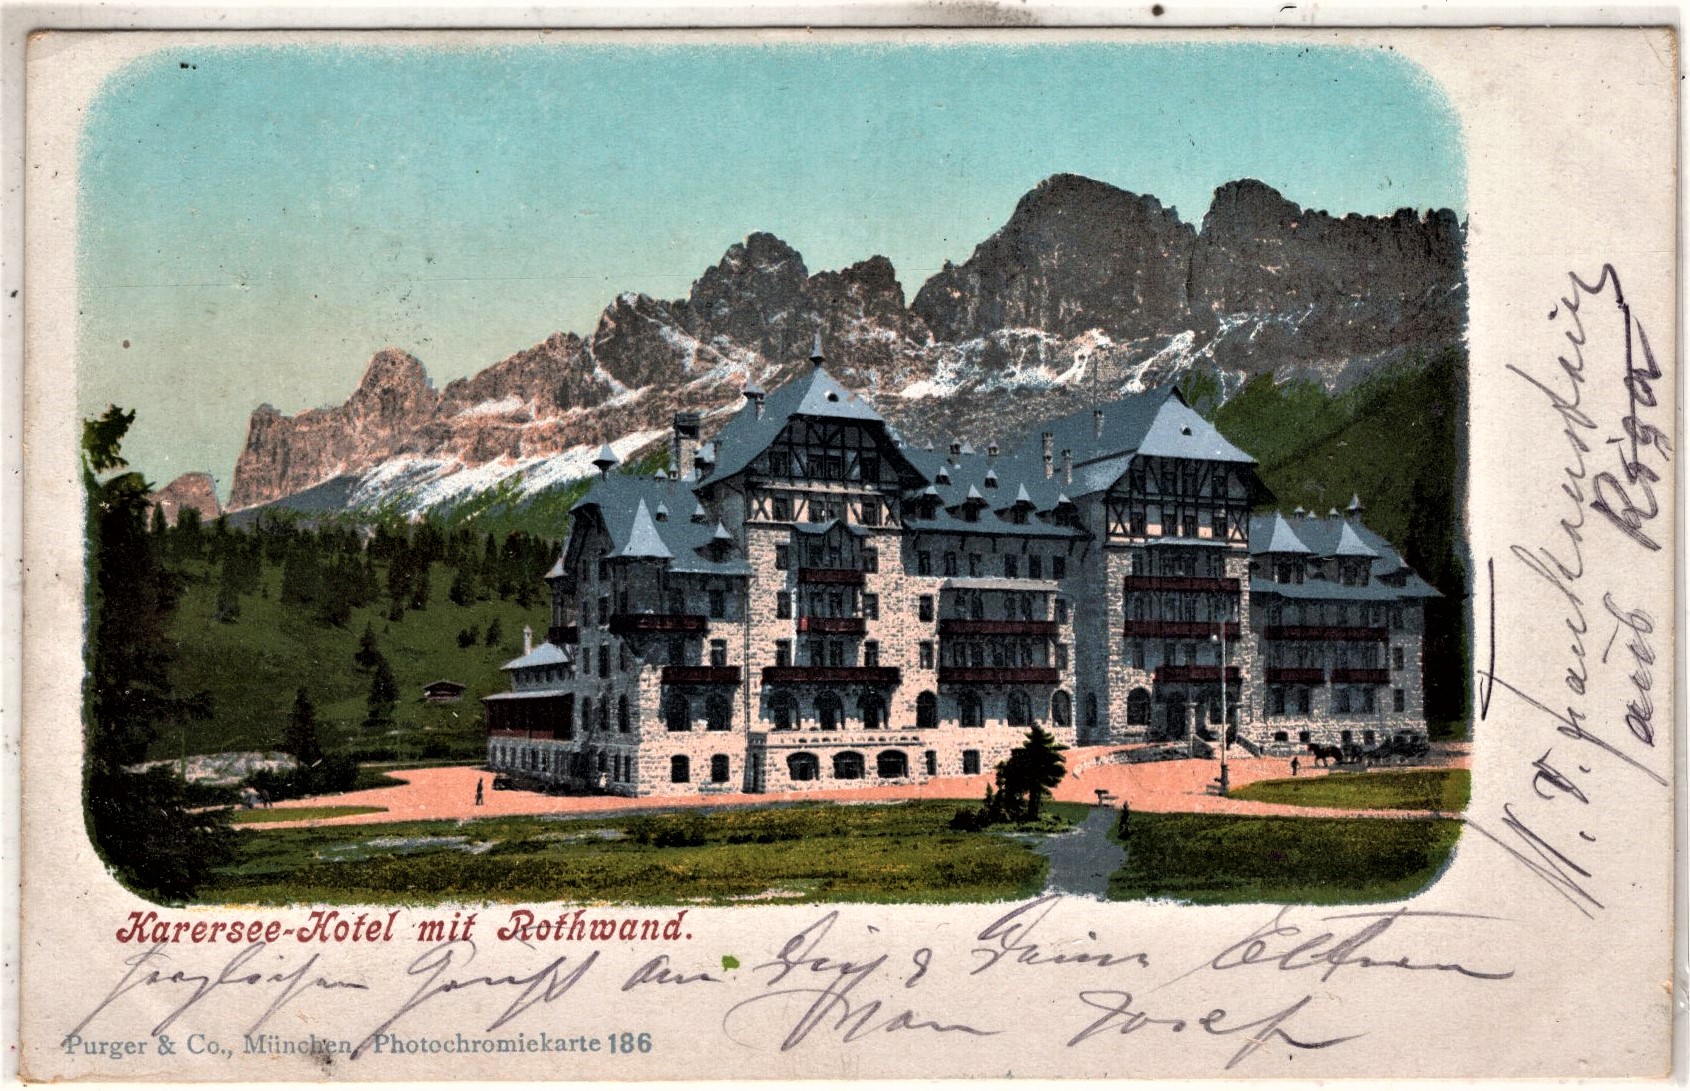 Karersee-Hotel mit Rothwand.
Herzlichen Gruß an Dich & Deine Eltern
Josef
Purger & Co., München, Photochromiekarte 186
W. v.
aus Riga